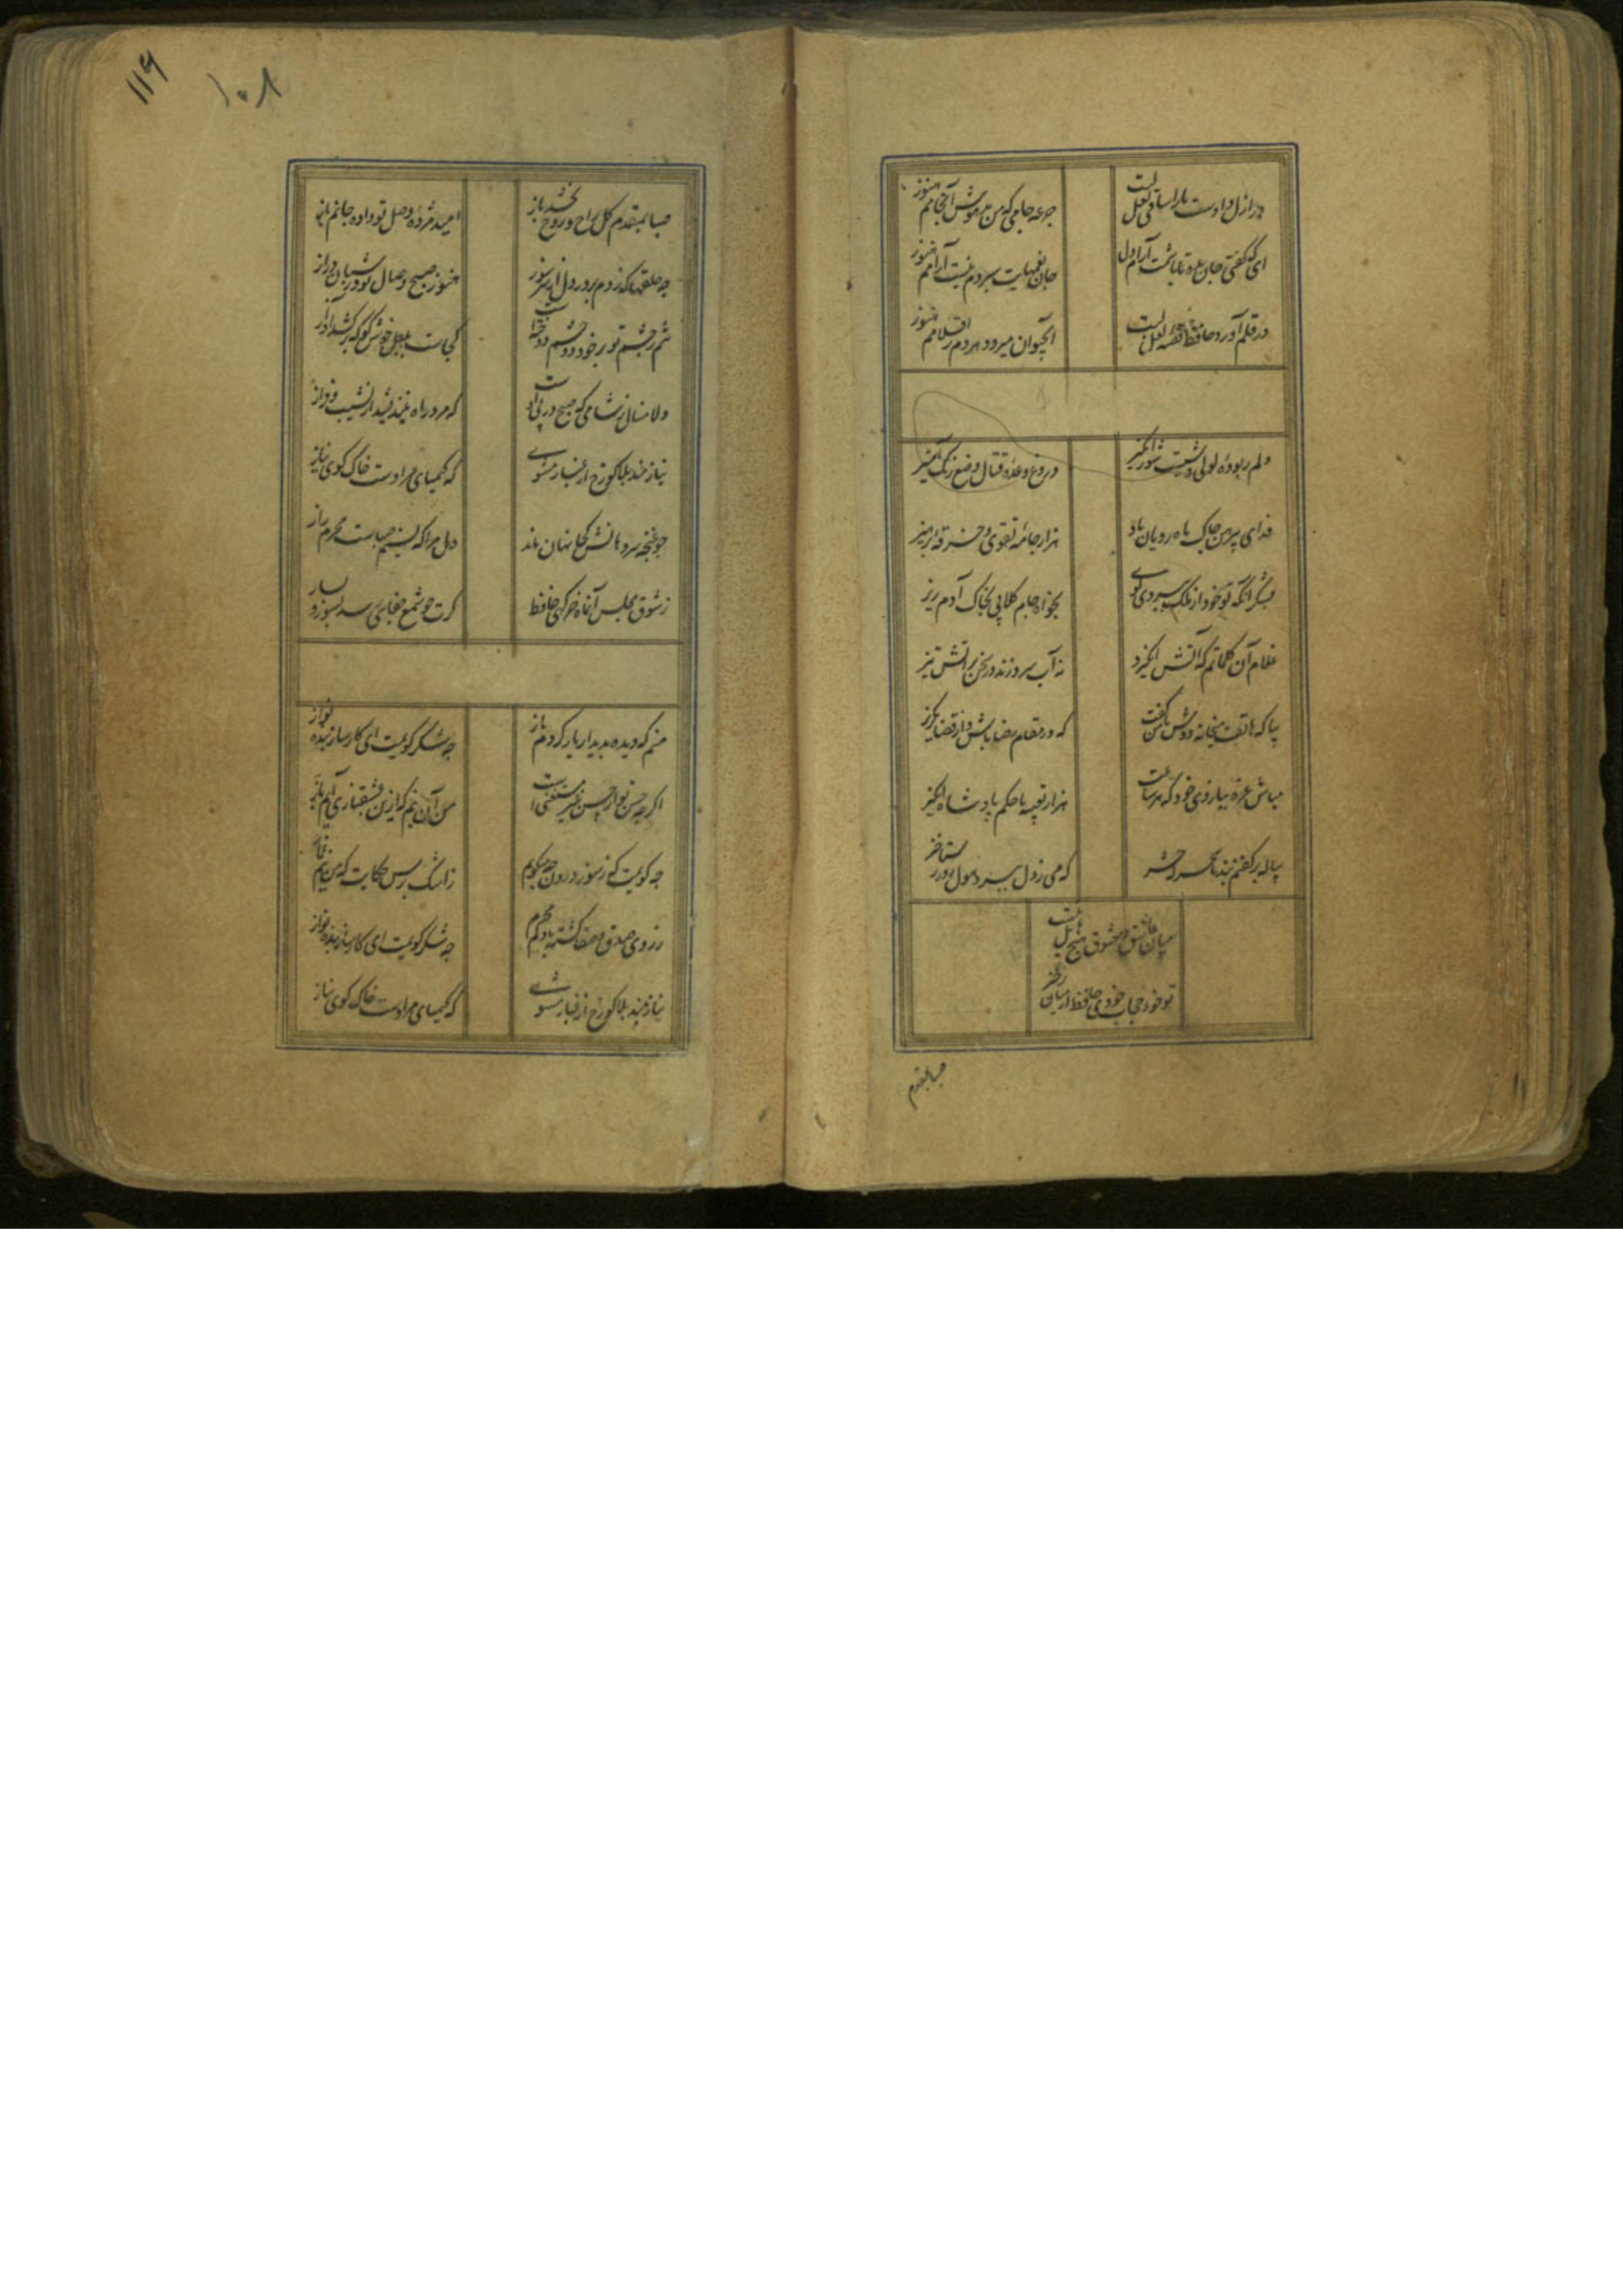 در ازل دادست ما را ساقی لعل لبت
جرعه جامی که من مدهوش آن جامم هنوز
ای که گفتی جان بده تا باشدت آرام دل
جان بغمهایت سپردم نیست آرامم هنوز
در قلم آورد حافظ قصه لعل لبت
آبحیوان میرود هر دم ز اقلامم هنوز
دلم ربوده لولی وشیست شورانگیز
دروغ وعده و قتال وضع و رنگ آمیز
فدای پیرهن چاک ماه رویان باد
هزار جامه تقوی و خرقه پرهیز
بشکر آنکه تو خود از ملک ببردی گوی
بخواه جام گلابی بخاک آدم ریز
غلام آن کلماتم که آتش انگیزد
نه آب سرد زند در سخن بر آتش تیز
بیا که هاتف میخانه دوش با من گفت
که در مقام رضا باش و از قضا مگریز
مباش غره ببازوی خود که هر ساعت
هزار تعبیه با حکم پادشاه انگیز
پیاله بر کفنم بند تا سحرگه حشر
که می ز دل ببرد هول روز رستاخیز
میان عاشق و معشوق هیچ حایل نیست
تو خود حجاب خودی حافظ از میان برخیز
صبا بمقدم
۱۱۶
۱۰۸
صبا بمقدم گل راح روح بخشد باز
امید مژده وصل تو داده جانم باز
چه حلقها که زدم بر در دل از سر سوز
هنوز صبح وصال تو در شبان دراز
شم ز چشم تو بر خود دو چشم دوخته است
کجاست بلبل خوش گو که برکشد آواز
دلا منال ز شامی که صبح در پی اوست
که مرد راه نیندیشد از نشیب و فراز
نیازمند بلا گو رخ از غبار مشوی
که کیمیای مرادست خاک کوی نیاز
چو غنچه سر دهانش کجا نهان ماند
دل مرا که نسیم صباست محرم راز
ز شوق مجلس آن ماه خرگهی حافظ
گرت چو شمع جفای رسد بسوز و بساز
منم که دیده بدیدار یار کردم باز
چه شکر گویمت ای کارساز بنده نواز
اگر چه حسن تو از حسن غیر مستغنی است
من آن نیم که ازین عشقبازی آیم باز
چه گویمت که ز سوز درون چه میگویم
ز اشک پرس حکایت که من نیم غماز
ز روی صدق و صفا گشته با دلم محرم
چه شکر گویمت ای کارساز بنده نواز
نیازمند بلا گو رخ از غبار مشوی
که کیمیای مرادست خاک کوی نیاز